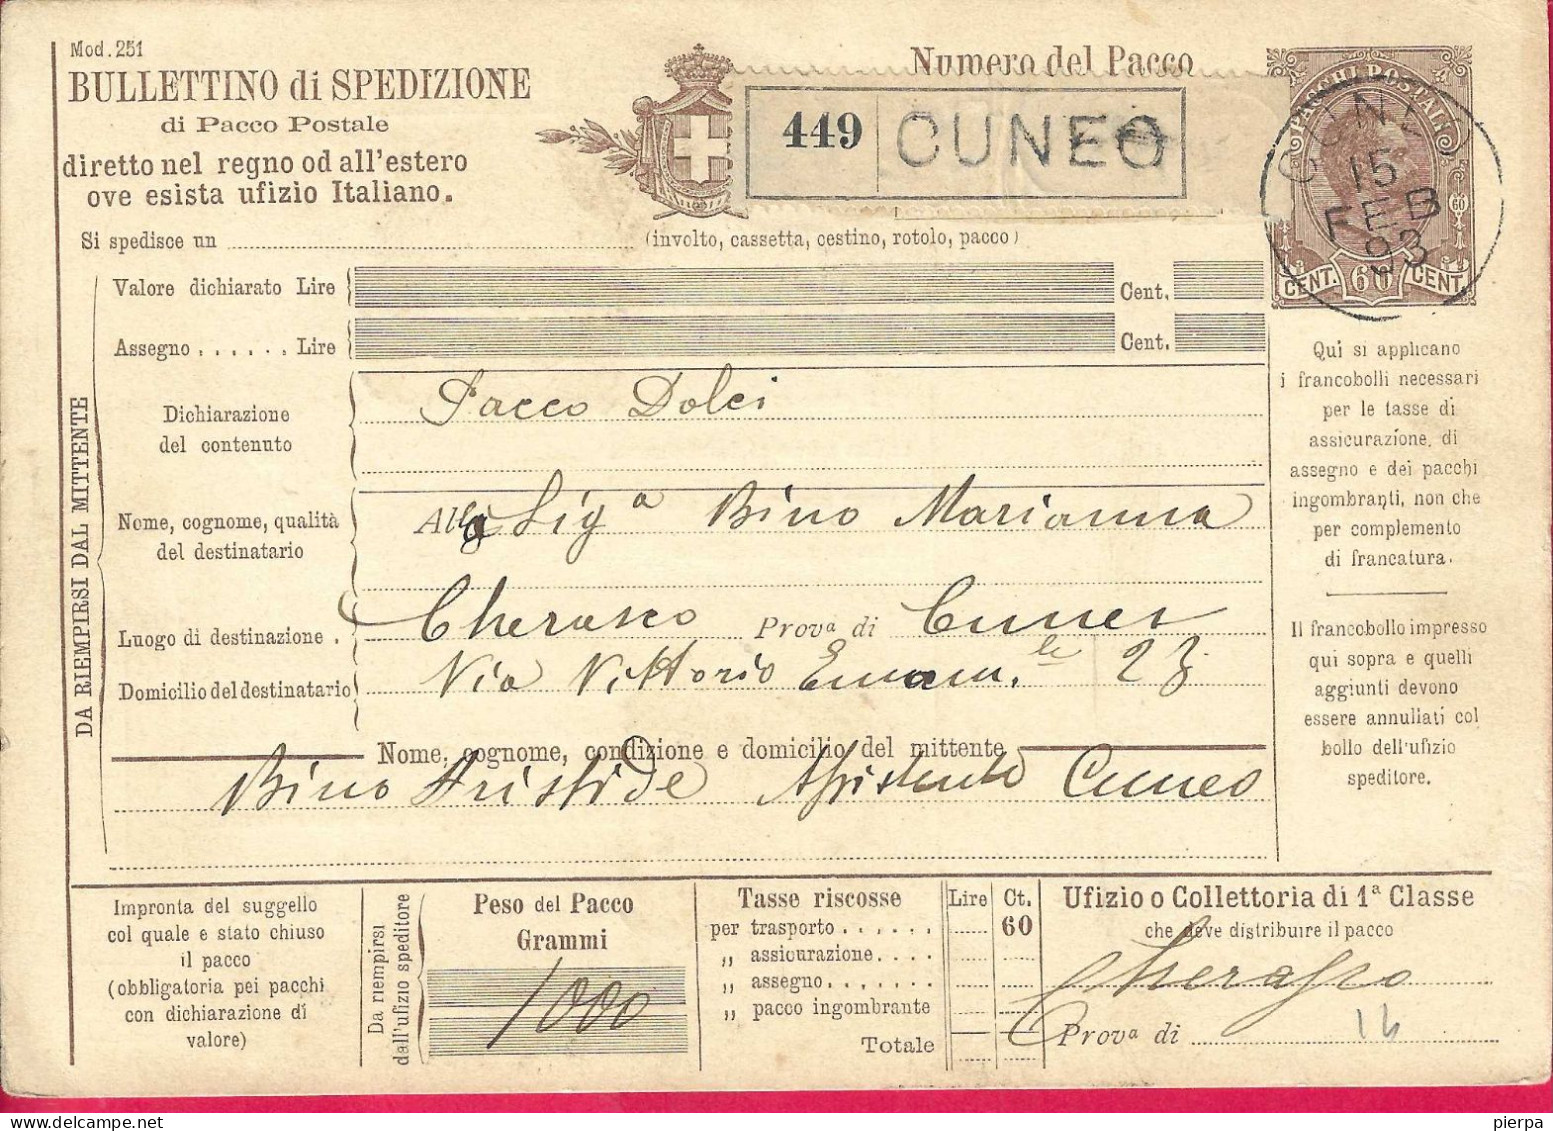 Mod. 251
BULLETTINO di SPEDIZIONE
di Pacco Postale
diretto nel regno od all'estero
ove esista ufizio Italiano.
Numero del Pacco
449 CUNEO
PACCHI POSTALI
60
CENT. 60 CENT.
CUNEO
15
FEB
93
Si spedisce un (involto, cassetta, cestino, rotolo, pacco)
DA RIEMPIRSI DAL MITTENTE
Valore dichiarato Lire Cent.
Assegno ...... Lire Cent.
Dichiarazione
del contenuto
Pacco Dolci
Nome, cognome, qualità
del destinatario
Alla Sigª Bino Marianna
Luogo di destinazione .
Cherasco Provª di Cuneo
Domicilio del destinatario
Via Vittorio Emam.le 23
Nome, cognome, condizione e domicilio del mittente
Bino Aristide Assistente Cuneo
Qui si applicano
i francobolli necessari
per le tasse di
assicurazione, di
assegno e dei pacchi
ingombranti, non che
per complemento
di francatura.
Il francobollo impresso
qui sopra e quelli
aggiunti devono
essere annullati col
bollo dell'ufizio
speditore.
Impronta del suggello
col quale e stato chiuso
il pacco
(obbligatoria pei pacchi
con dichiarazione di
valore)
Da riempirsi
dall'ufizio speditore
Peso del Pacco
Grammi
1000
Tasse riscosse Lire Ct.
per trasporto ...... 60
„ assicurazione....
„ assegno.......
„ pacco ingombrante
Totale
Ufizio o Collettoria di 1ª Classe
che deve distribuire il pacco
Cherasco
Provª di
16
pierpa